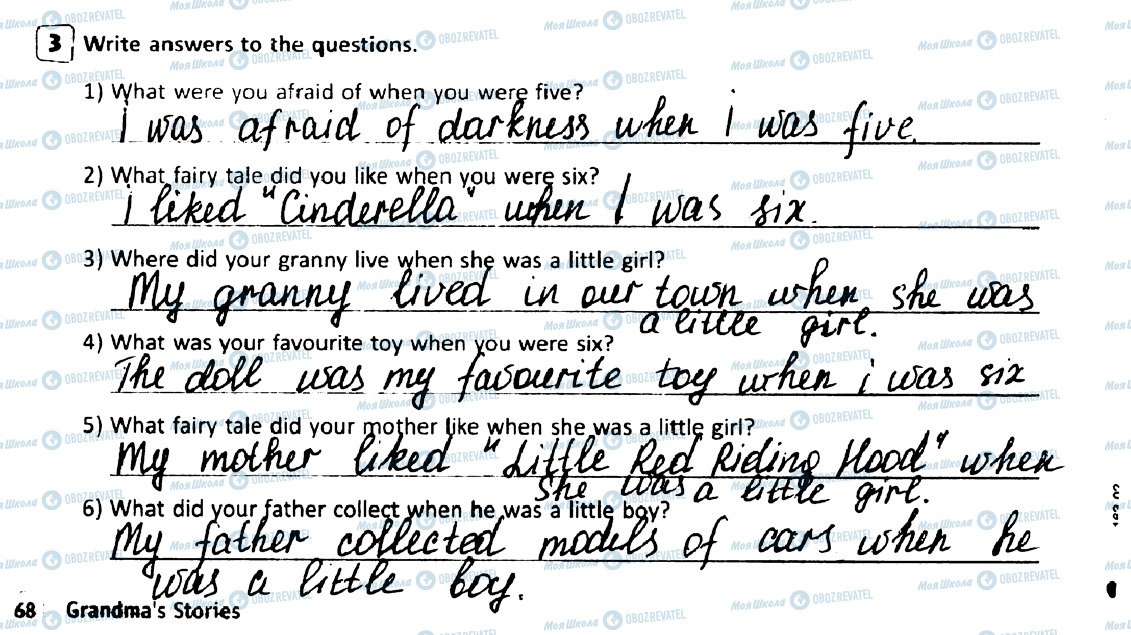 3 Write answers to the questions.
1) What were you afraid of when you were five?
I was afraid of darkness when i was five.
2) What fairy tale did you like when you were six?
i liked "Cinderella" when I was six.
3) Where did your granny live when she was a little girl?
My granny lived in our town when she was
a little girl.
4) What was your favourite toy when you were six?
The doll was my favourite toy when i was six
5) What fairy tale did your mother like when she was a little girl?
My mother liked "Little Red Riding Hood" when
she was a little girl.
6) What did your father collect when he was a little boy?
My father collected models of cars when he
was a little boy.
68 Grandma's Stories
МояШкола OBOZREVATEL